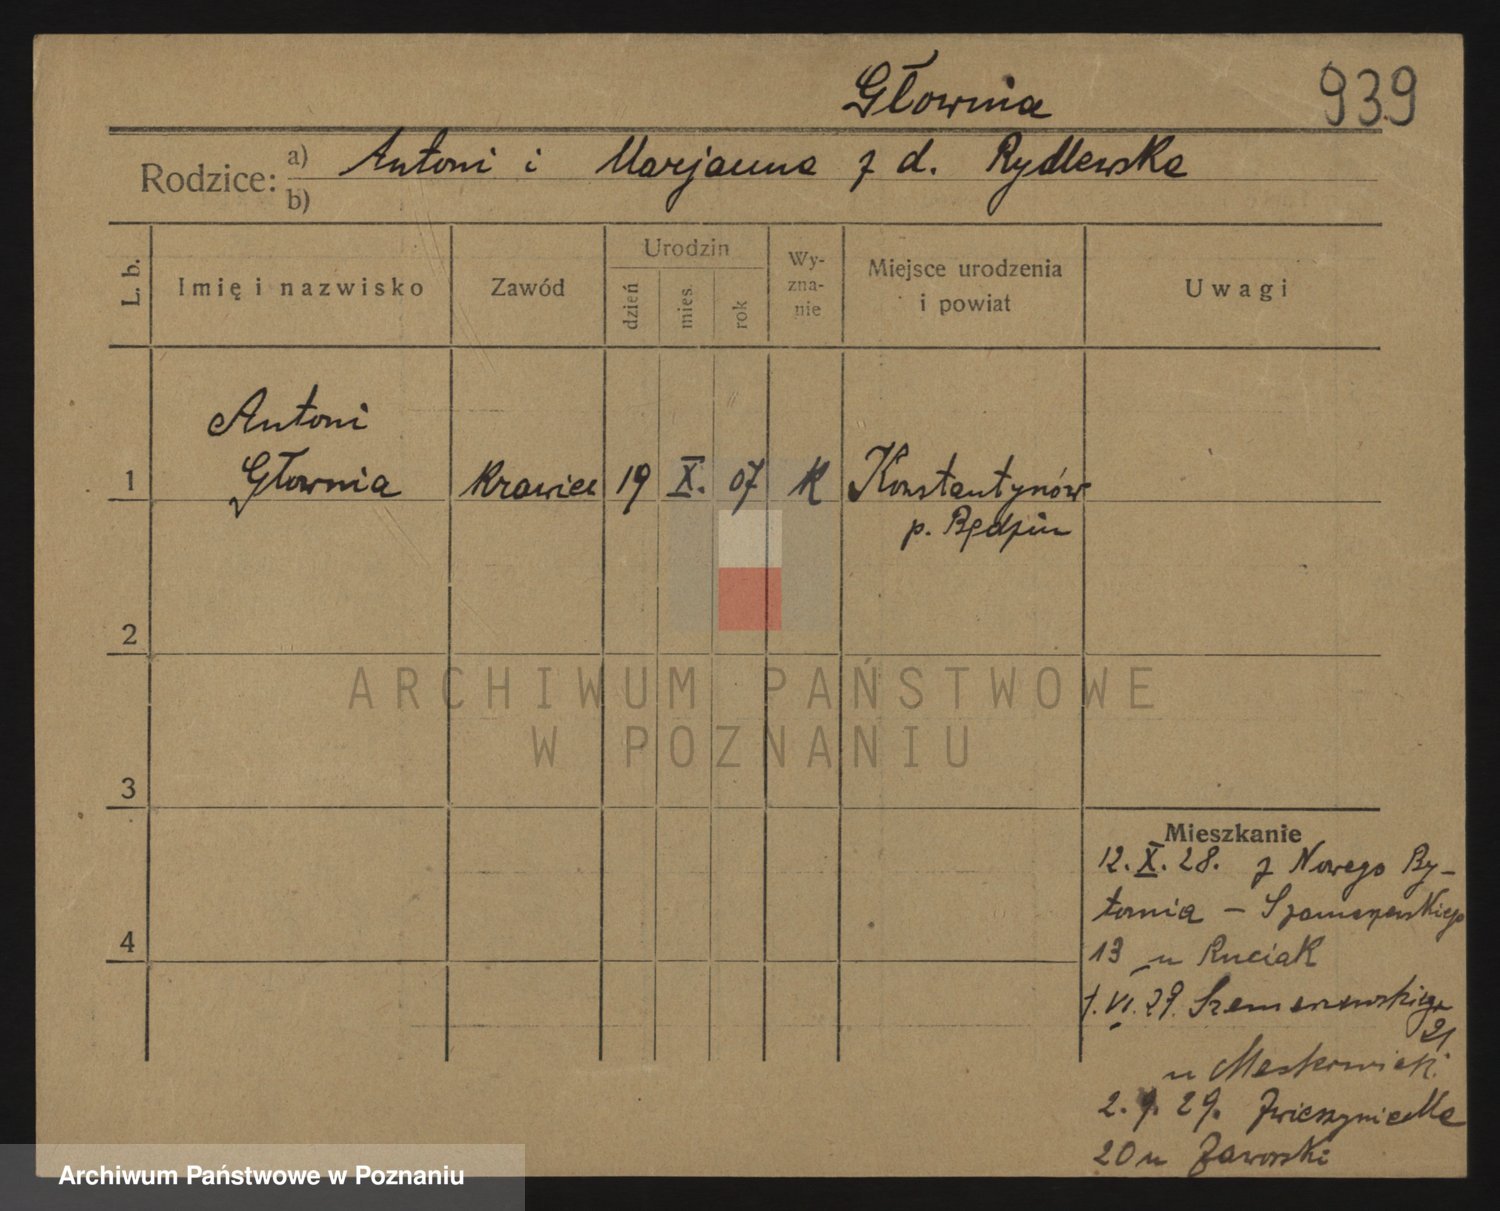 Głownia
939
Rodzice: a) Antoni i Marjanna z d. Rydlewska
b)
L. b.
Imię i nazwisko
Zawód
Urodzin
dzień
mies.
rok
Wy-
zna-
nie
Miejsce urodzenia
i powiat
Uwagi
Antoni
1 Głownia krawiec 19 X. 07 k Konstantynów
p. Będzin
2
ARCHIWUM PAŃSTWOWE
W POZNANIU
3
Mieszkanie
12. X. 28. z Nowego By-
tomia - Szamarzewskiego
4
13 u Ruciak
1. VI. 29. Szamarzewskiego
21
u
2. 9. 29. Zwierzyniecka
20 u Zaworski
Archiwum Państwowe w Poznaniu